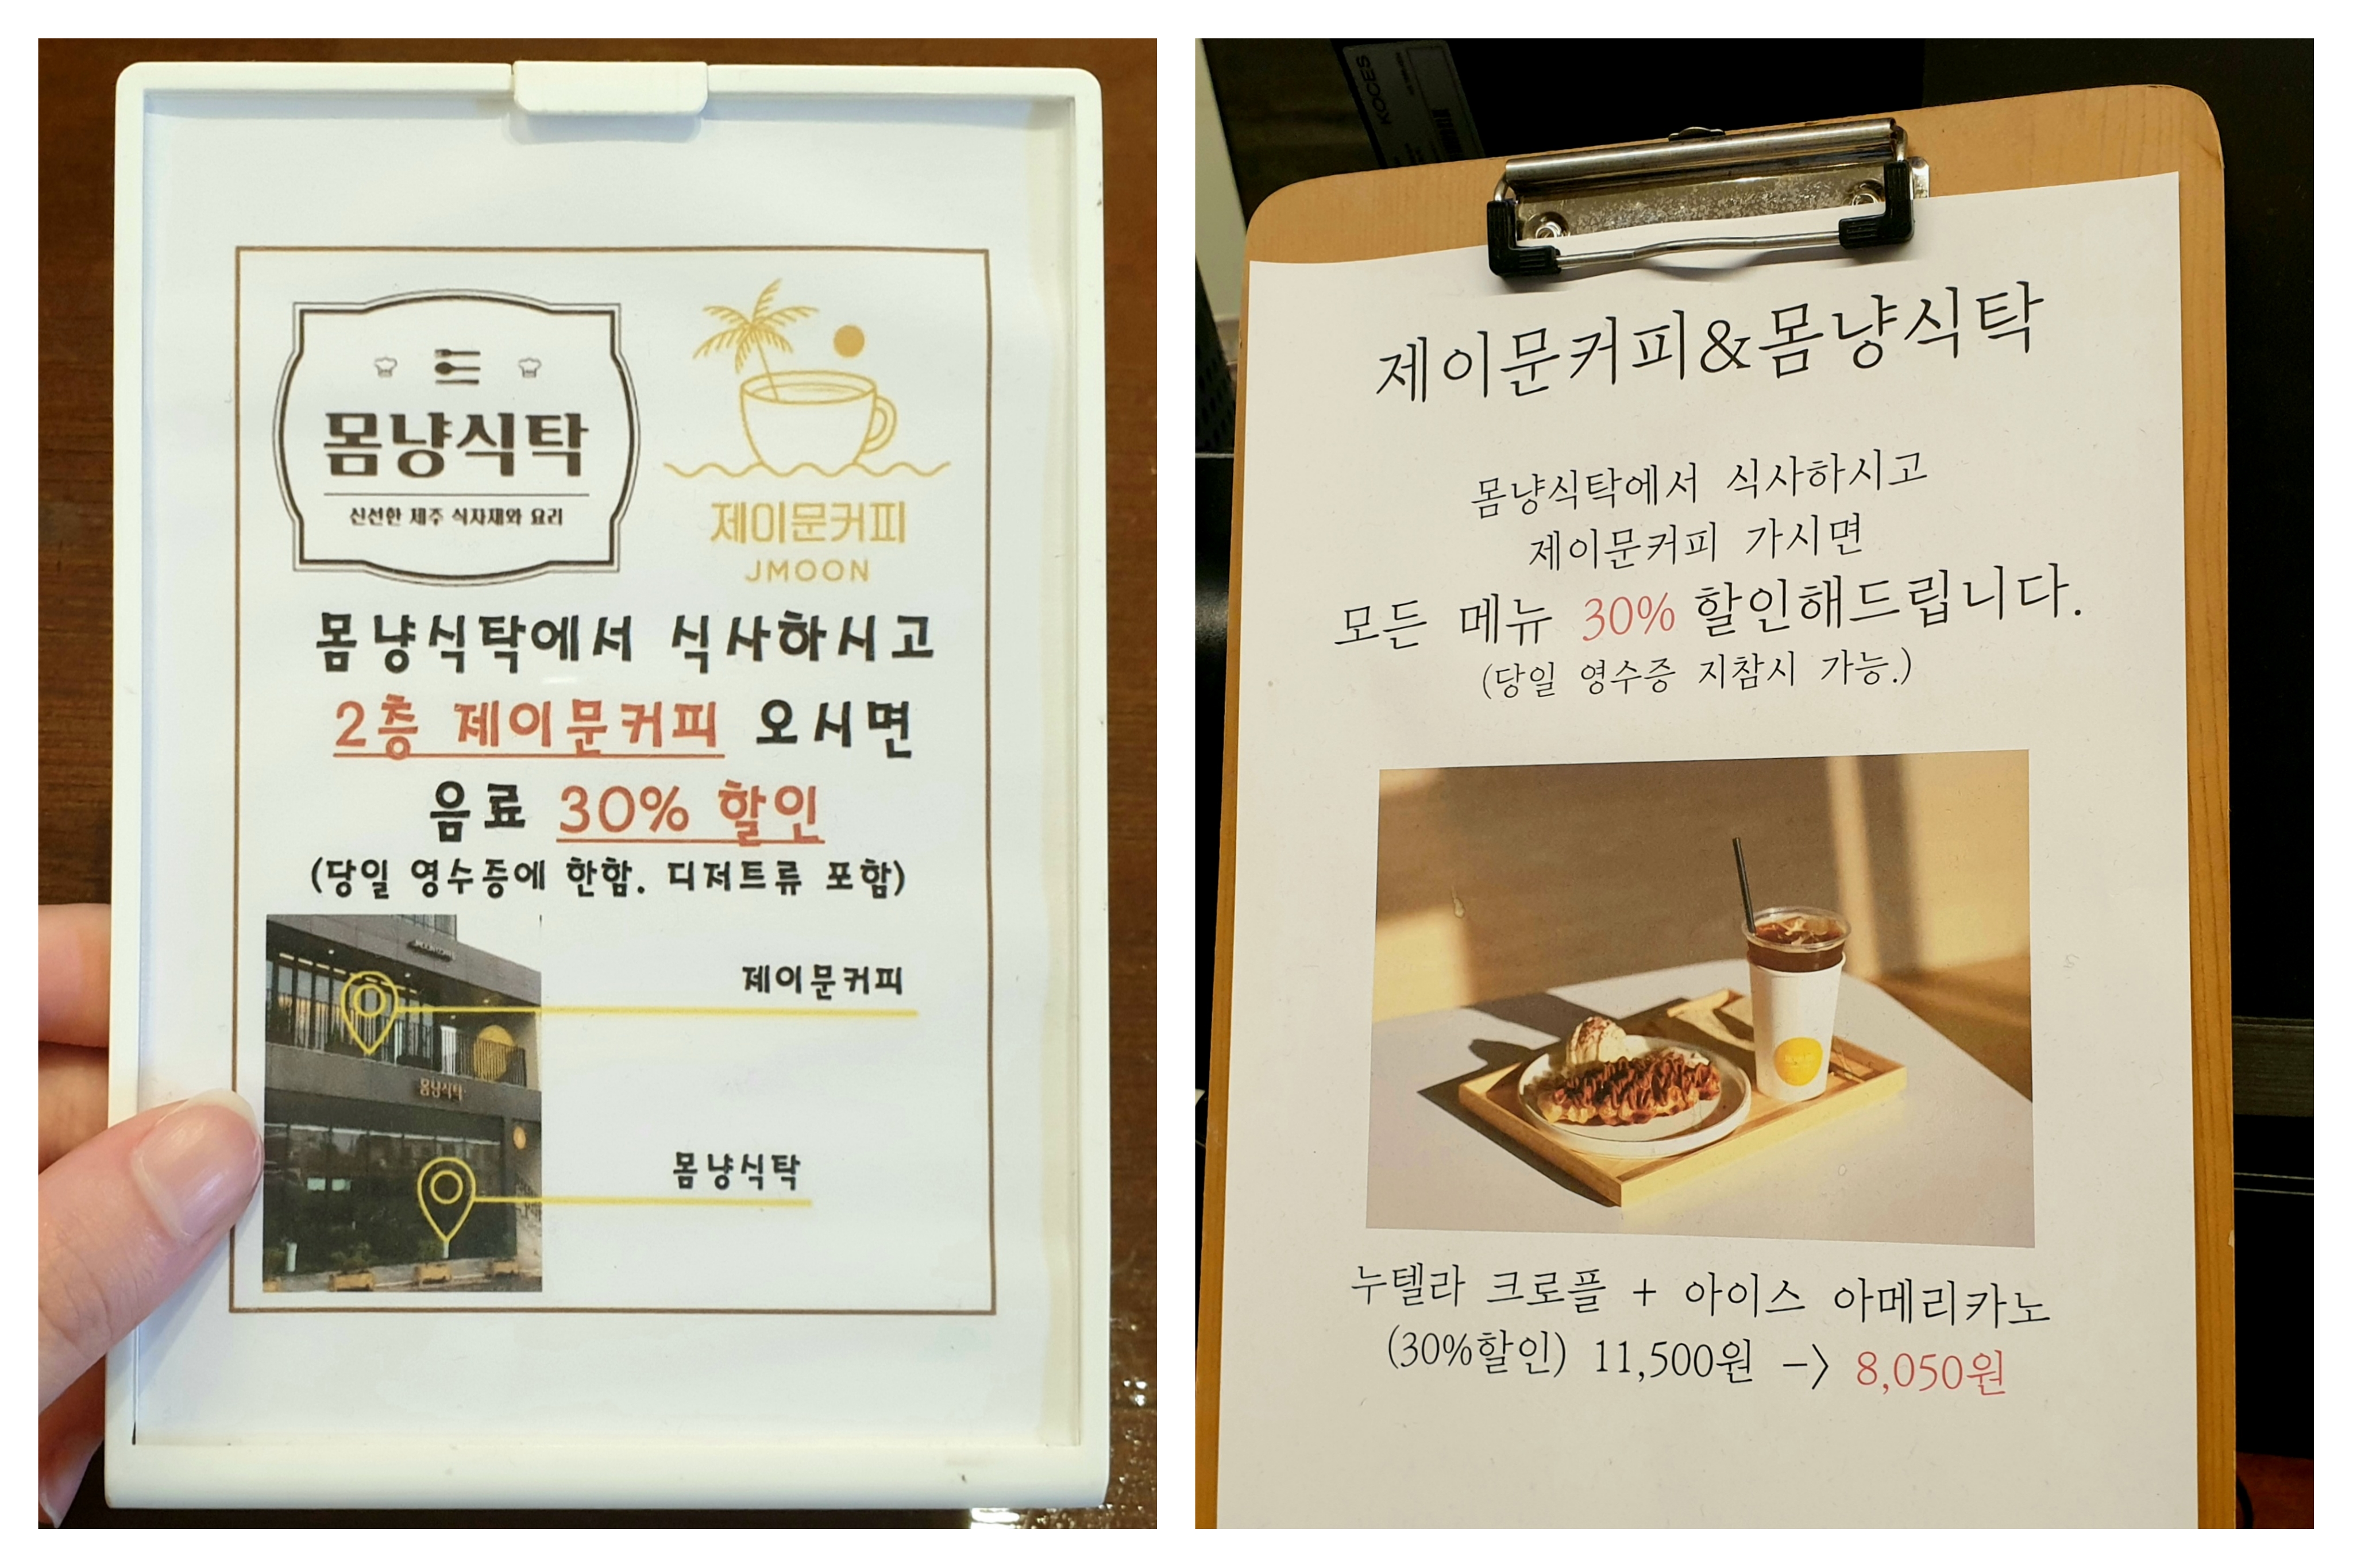 몸냥식탁
신선한 제주 식자재와 요리
제이문커피
JMOON
몸냥식탁에서 식사하시고
2층 제이문커피 오시면
음료 30% 할인
(당일 영수증에 한함. 디저트류 포함)
제이문커피
몸냥식탁
몸냥식탁
KOCES
제이문커피&몸냥식탁
몸냥식탁에서 식사하시고
제이문커피 가시면
모든 메뉴 30% 할인해드립니다.
(당일 영수증 지참시 가능.)
누텔라 크로플 + 아이스 아메리카노
(30%할인) 11,500원 -> 8,050원